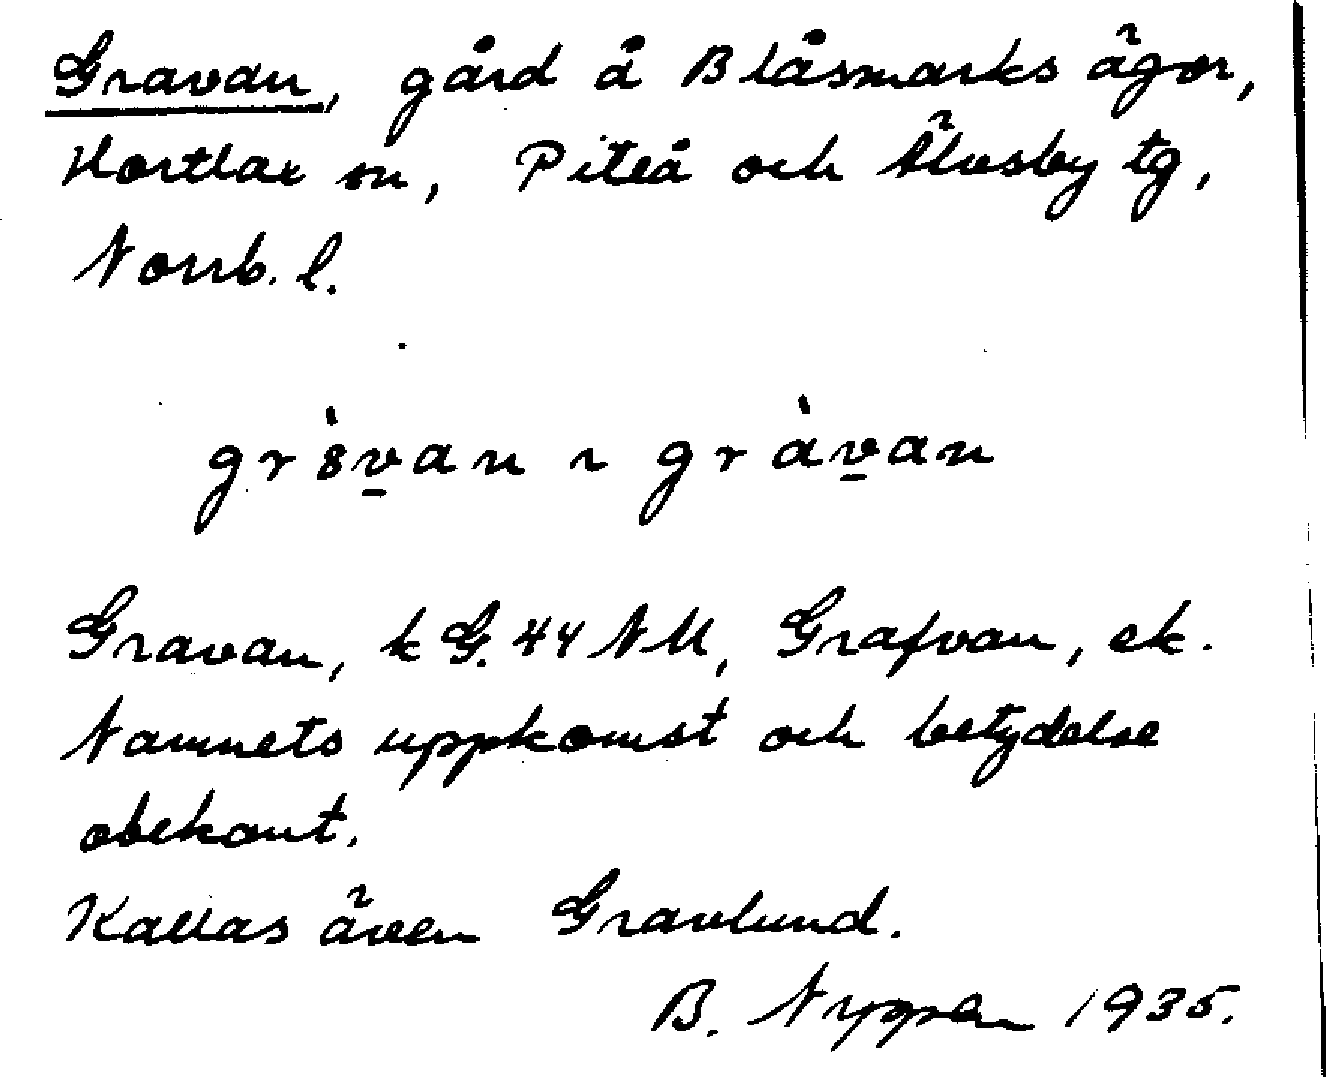 Gravan, gård å Blåsmarks ägor,
Hortlax sn, Piteå och Älvsby tg,
Norrb. l.
gr8̀v̲an ~ gràv̲an
Gravan, k G. 44 NM, Grafvan, ek.
Namnets uppkomst och betydelse
obekant.
Kallas även Gravlund.
B. Nygren 1935.